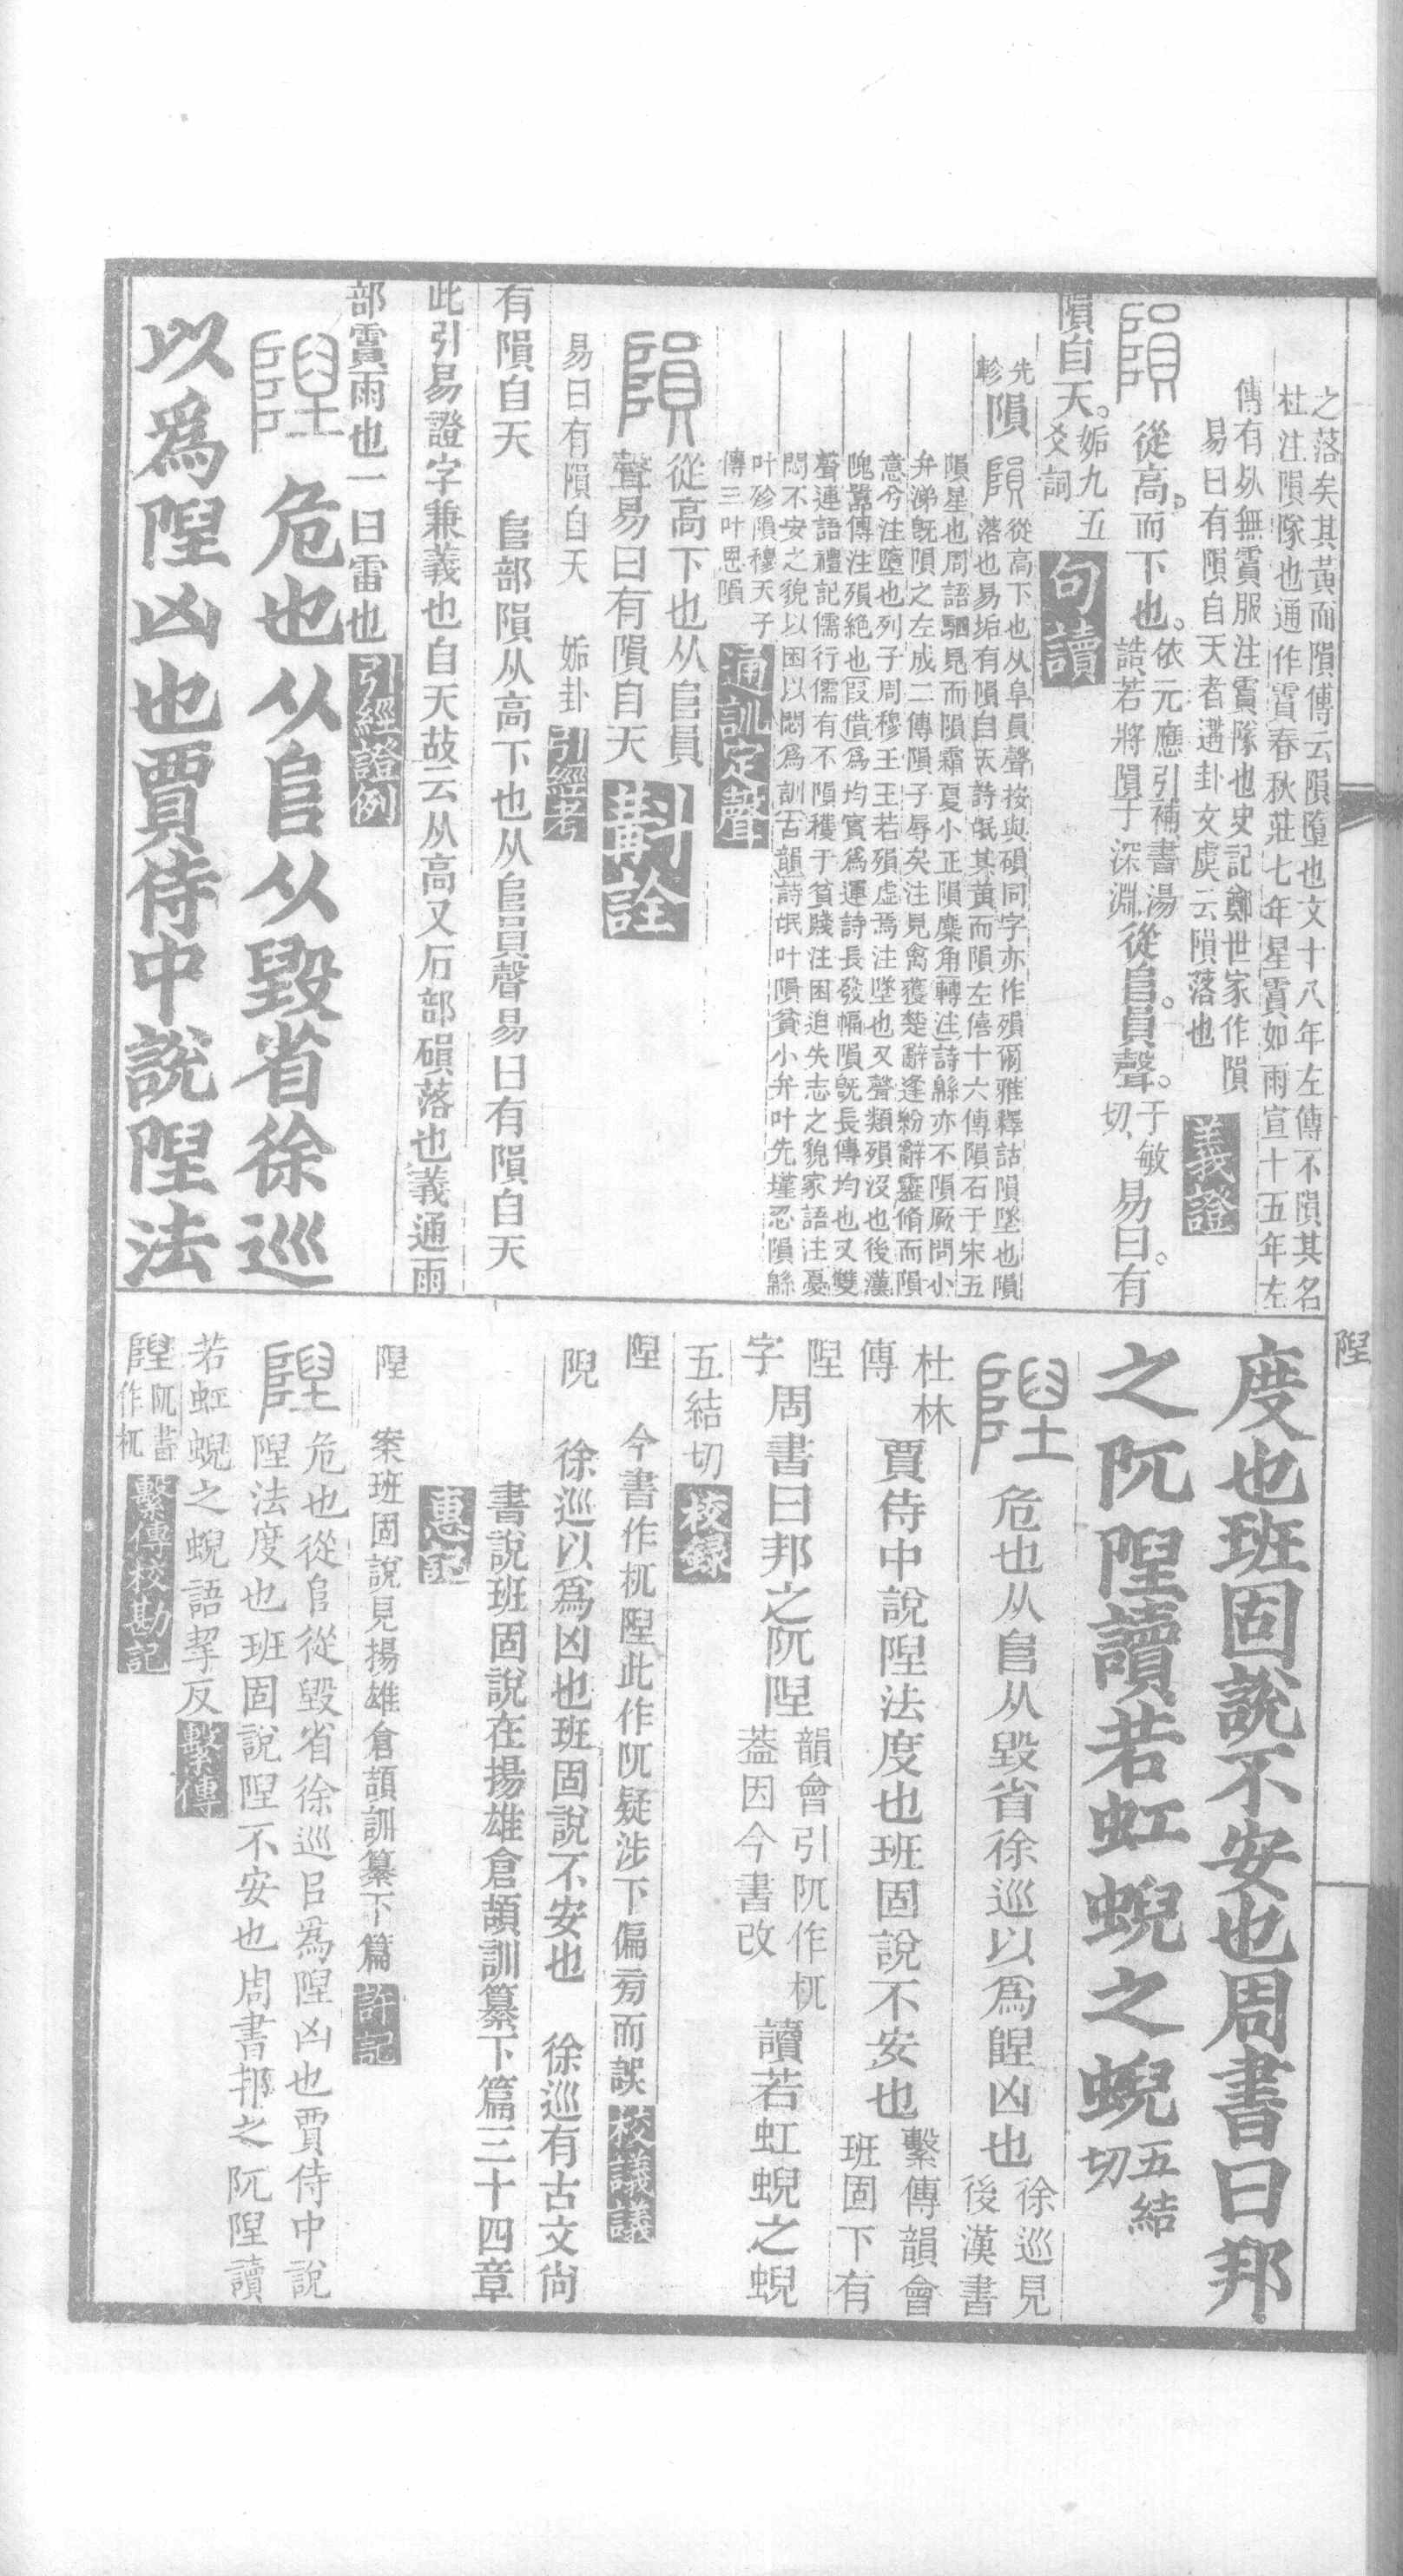 之落矣其黃而隕傳云隕墮也文十八年左傳不隕其名
杜注隕隊也通作霣春秋莊七年星霣如雨宣十五年左
傳有死無霣服注霣隊也史記鄭世家作隕
易曰有隕自天者遘卦文虞云隕落也
義證
隕
從高而下也
依元應引補書湯
誥若將隕于深淵
從𨸏員聲
于敏
切
易曰有
隕自天
姤九五
爻詞
句讀
先
軫
隕
隕從高下也从阜員聲按與磒同字亦作殞爾雅釋詁隕墜也隕
落也易垢有隕自天詩氓其黃而隕左僖十六傳隕石于宋五
隕星也周語駟見而隕霜夏小正隕麋角轉注詩緜亦不隕厥問小
弁涕既隕之左成二傳隕子辱矣注見禽獲楚辭逢紛辭靈脩而隕
意兮注墮也列子周穆王王若殞虛焉注墜也又聲類殞沒也後漢
隗囂傳注殞絕也叚借爲均實爲運詩長發幅隕既長傳均也又雙
聲連語禮記儒行儒有不隕穫于貧賤注困迫失志之貌家語注憂
悶不安之貌以困以悶爲訓古韻詩氓叶隕貧小弁叶先墐忍隕緜
叶殄隕穆天子
傳三叶恩隕
通訓定聲
隕
從高下也从𨸏員
聲易曰有隕自天
斠詮
易曰有隕自天　姤卦
引經考
有隕自天　𨸏部隕从高下也从𨸏員聲易曰有隕自天
此引易證字兼義也自天故云从高又石部磒落也義通雨
部霣雨也一曰雷也
引經證例
隉
危也从𨸏从毀省徐巡
以爲隉凶也賈侍中說隉法
隉
度也班固說不安也周書曰邦
之阢隉讀若虹蜺之蜺
五結
切
隉
危也从𨸏从毀省徐巡以爲隉凶也
徐巡見
後漢書
杜林
傳
賈侍中說隉法度也班固說不安也
繫傳韻會
班固下有
隉
字
周書曰邦之阢隉
韻會引阢作杌
葢因今書改
讀若虹蜺之蜺
五結切
校錄
隉
今書作杌隉此作阢疑涉下偏㫄而誤
校議議
隉
徐巡以爲凶也班固說不安也　徐巡有古文尙
書說班固說在揚雄倉頡訓纂下篇三十四章
惠記
隉
案班固說見揚雄倉頡訓纂下篇
許記
隉
危也從𨸏從毀省徐巡㠯爲隉凶也賈侍中說
隉法度也班固說隉不安也周書邦之阢隉讀
若虹蜺之蜺語挈反
繫傳
隉
阢書
作杌
繫傳校勘記